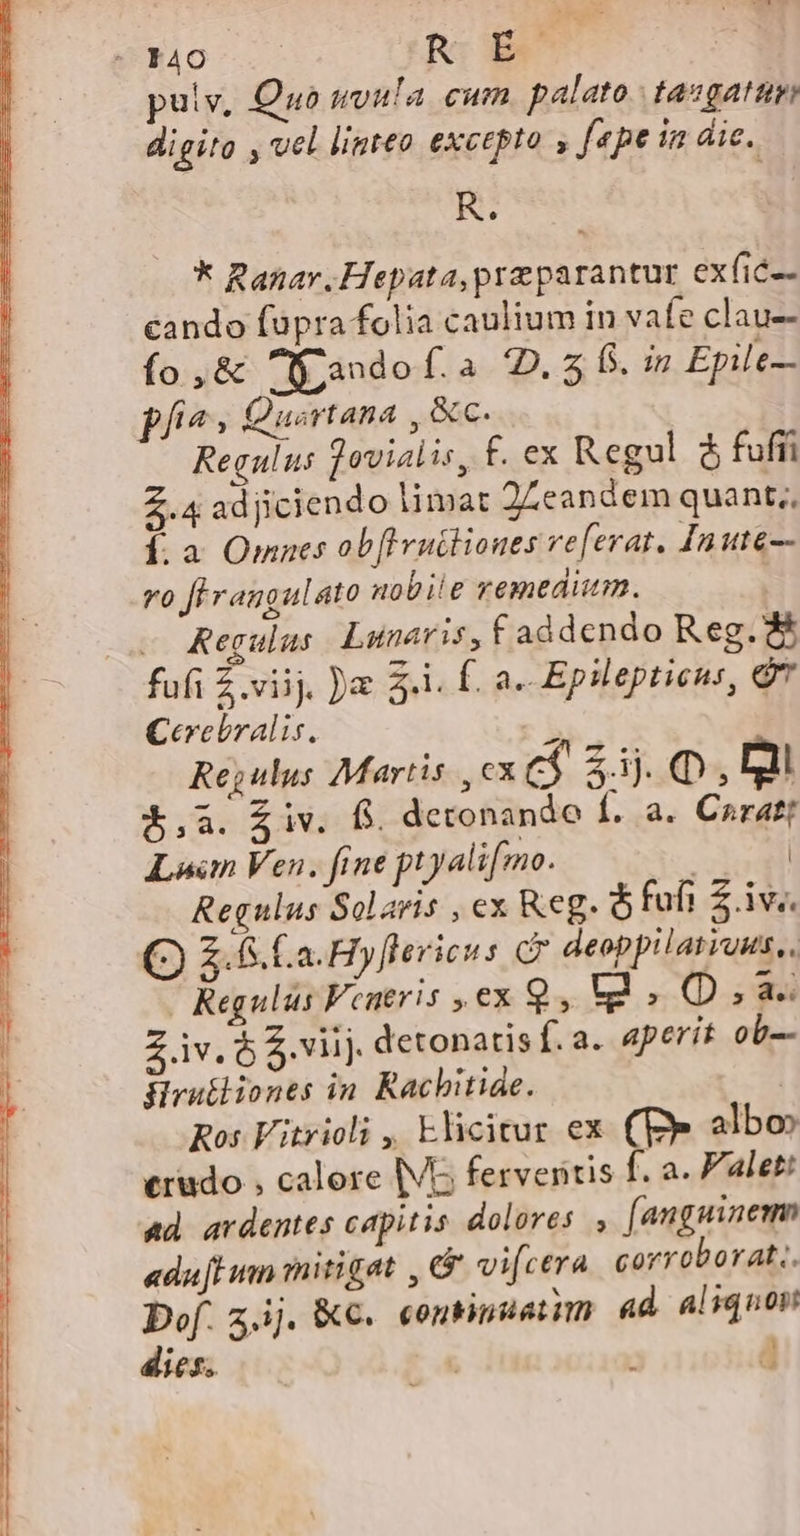 140 R E
pulv. Quo uvula cum palato tangatur
digito, vel linteo excepto, ſæpe in die.
R.
* Ranar. Hepata, præparantur exſic--
cando ſupra folia caulium in vaſe clau--
ſo, & ando ſ. a D. ʒ ß. in Epile--
pſia, Quartana, &c.
Regulus Jovialis, f. ex Regul ♁ fuſii
℥.4 adjiciendo limat ♃ eandem quant,
ſ. a Omnes obſtructiones referat. In ute--
ro ſtrangulato nobile remedium.
Regulus Lunaris, f addendo Reg.
fuſi ℥.viij. ☽æ ℥.i. ſ. a. Epilepticus, &
Cerebralis.
Regulus Martis, ex ♂ ℥.ij.
♁, ã. ℥ iv. ß. detonando ſ. a. Curat
Luem Ven. ſine ptyaliſmo.
Regulus Solaris, ex Reg. ♁ fuſi ℥.iv.
☉ ℥.ß. ſ.a. Hyſtericus & deoppilativus,
Regulus Veneris, ex ♀, ã.
℥.iv. ♁ ℥.viij. detonatis ſ. a. aperit ob--
ſtructiones in Rachitide.
Ros Vitrioli, Elicitur ex albo
crudo, calore ferventis ſ. a. Valet
ad ardentes capitis dolores, ſanguinem
aduſtum mitigat, & viſcera corroborat.
Doſ. ʒ.ij. &c. continuatim ad aliquot
dies.